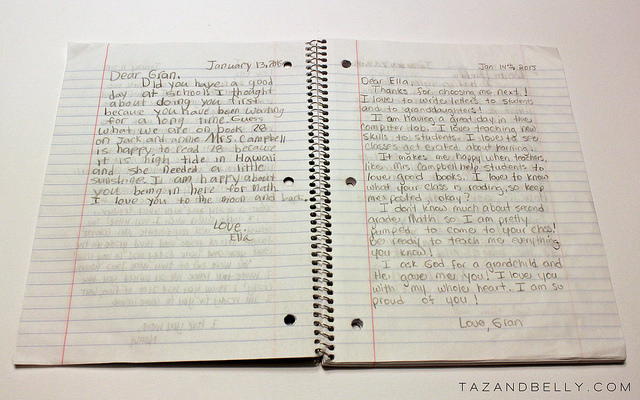 January 13, 2015
Dear Gran,
Did you have a good
day at school? I thought
about doing you first
because you have been waiting
for a long time. Guess
what we are on book 28
on Jack and Annie Mrs. Campbell
is happy to read 28 because
it is high tide in Hawaii
and she needed a little
sunshine. I am happy about
you being in here for Math
I love you to the moon and back.
Love,
Ella
Jan 14th, 2015
Dear Ella,
Thanks for choosing me next!
I love to write letters to students
and to granddaughters!
I am having a great day in the
computer lab. I love teaching new
skills to students. I love to see
classes get excited about learning.
It makes me happy when teachers,
like Mrs. Campbell help students to
love good books. I love to know
what your class is reading, so keep
me posted, okay?
I don't know much about second
grade Math so I am pretty
pumped to come to your class!
Be ready to teach me everything
you know!
I ask God for a grandchild and
He gave me you! I love you
with my whole heart. I am so
proud of you!
Love, Gran
TAZANDBELLY.COM